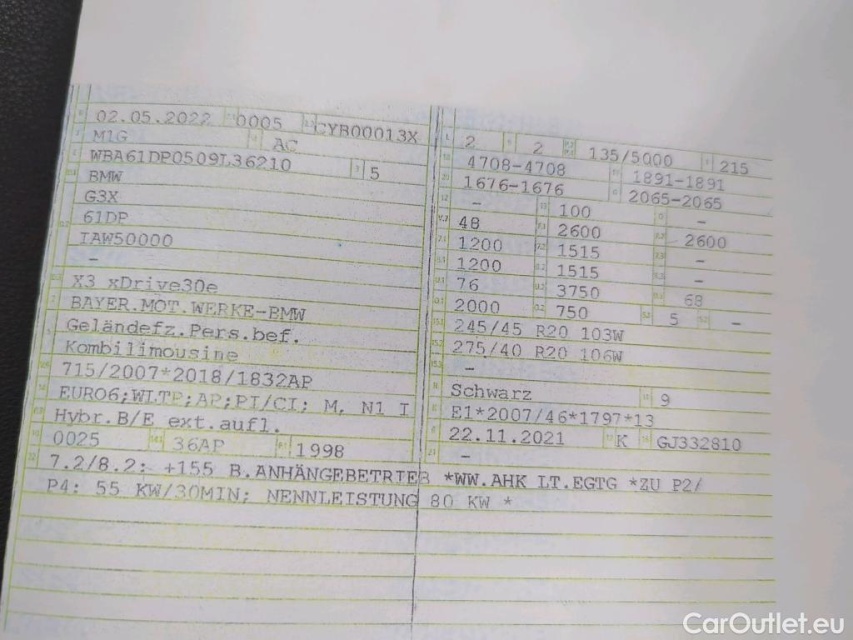 02.05.2022 0005 CYB00013X
M1G AC
WBA61DP0509L36210 5
BMW
G3X
61DP
IAW50000
-
X3 xDrive30e
BAYER.MOT.WERKE-BMW
Geländefz.Pers.bef.
Kombilimousine
715/2007*2018/1832AP
EURO6;WLTP;AP;PI/CI; M, N1 I
Hybr.B/E ext.aufl.
0025 36AP 1998
2 2 135/5000 215
4708-4708 1891-1891
1676-1676 2065-2065
- 100 -
48 2600 2600
1200 1515 -
1200 1515 -
76 3750 68
2000 750 5 -
245/45 R20 103W
275/40 R20 106W
-
Schwarz 9
E1*2007/46*1797*13
22.11.2021 K GJ332810
-
7.2/8.2: +155 B.ANHÄNGEBETRIEB *WW.AHK LT.EGTG *ZU P2/
P4: 55 KW/30MIN; NENNLEISTUNG 80 KW *
CarOutlet.eu